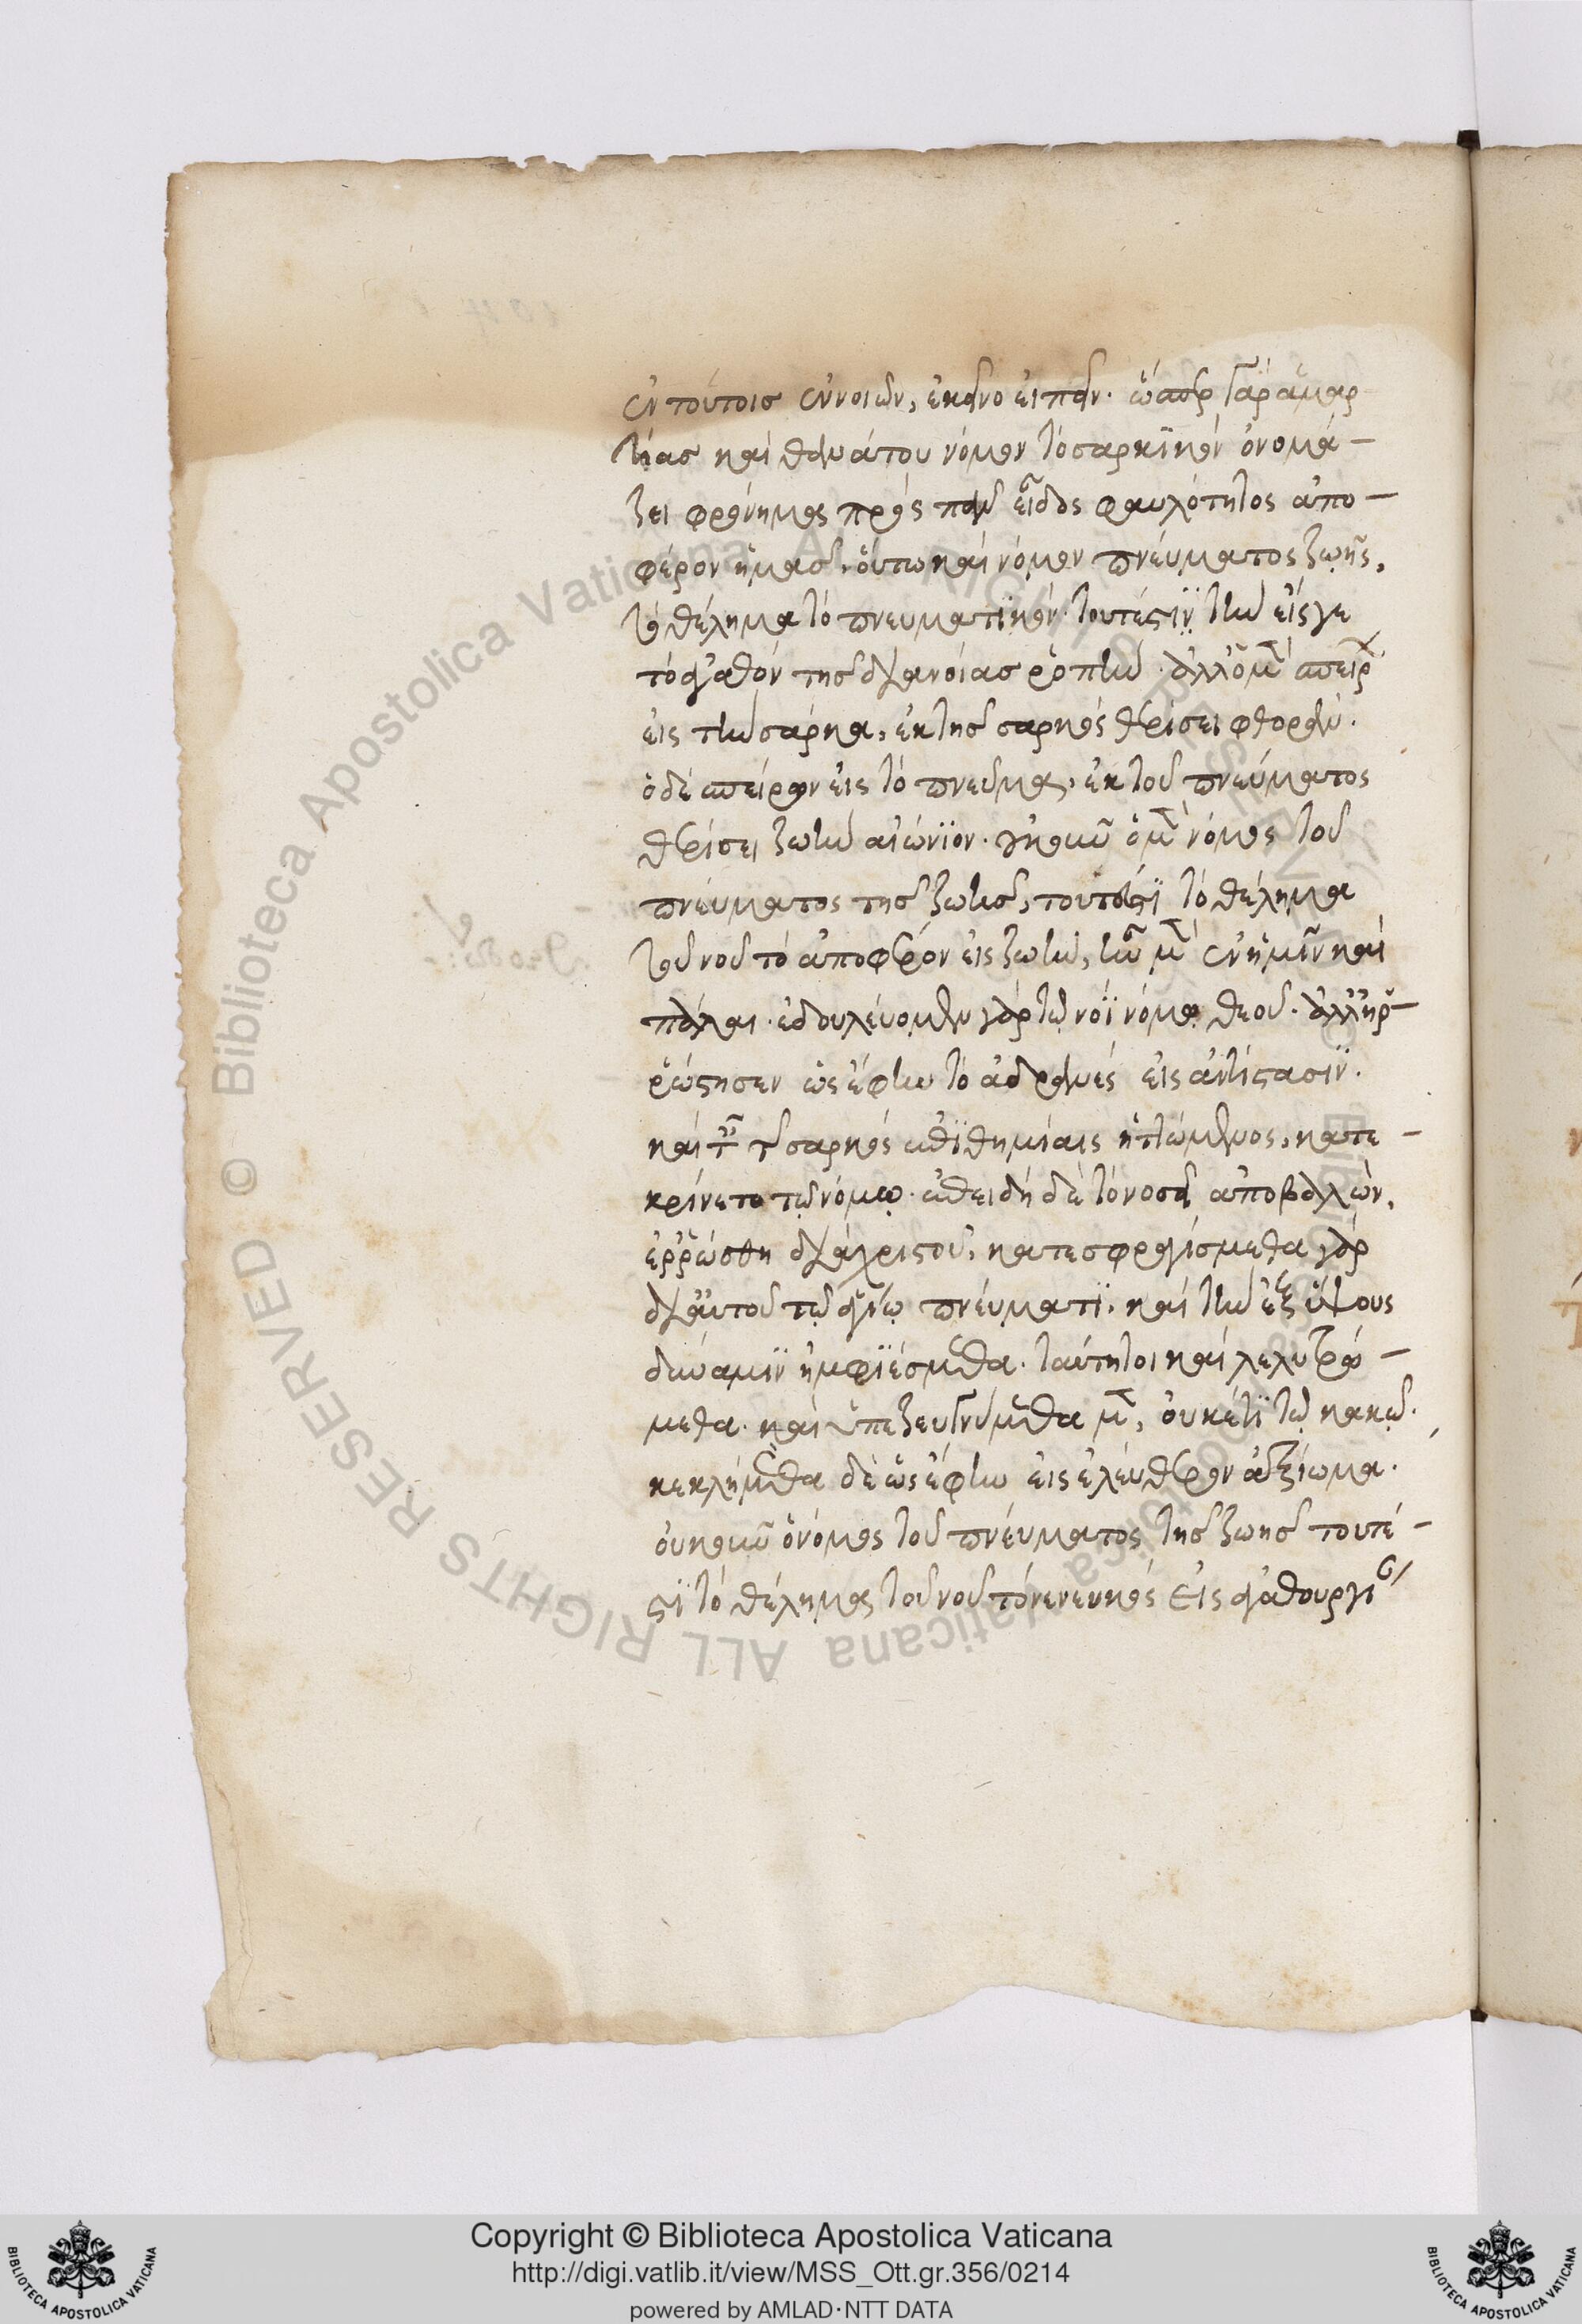 ἐν τούτοις ἐννοιῶν, ἐκεῖνο εἰπεῖν. ὥσπερ γὰρ ἁμαρ
τίας καὶ θανάτου νόμον τὸ σαρκικὸν ὀνομά-
ζει φρόνημα πρὸς πᾶν εἶδος φαυλότητος ἀπο-
φέρον ἡμᾶς. οὕτω καὶ νόμον πνεύματος ζωῆς,
τὸ θέλημα τὸ πνευματικὸν. τουτέστιν τὴν εἴς γε
τὸ ἀγαθὸν τῆς διανοίας ῥοπὴν. ἀλλ' ὁ μὲν σπείρων
εἰς τὴν σάρκα, ἐκ τῆς σαρκὸς θερίσει φθοράν.
ὁ δὲ σπείρων εἰς τὸ πνεῦμα, ἐκ τοῦ πνεύματος
θερίσει ζωὴν αἰώνιον. οὐκοῦν ὁ μὲν νόμος τοῦ
πνεύματος τῆς ζωῆς, τουτέστι τὸ θέλημα
τοῦ νοῦ τὸ ἀποφέρον εἰς ζωὴν, ἦν μὲν ἐν ἡμῖν καὶ
πάλαι. ἐδουλεύομεν γὰρ τῷ νοῒ νόμῳ θεοῦ. ἀλλ' ἠρ-
ρώστησεν ὡς ἔφην τὸ ἀδρανὲς εἰς ἀντίστασιν.
καὶ ταῖς τῆς σαρκὸς ἐπιθυμίαις ἡττώμενος, κατε-
κρίνετο τῷ νόμῳ. ἐπειδὴ δὲ τὸ νοσεῖν ἀποβαλὼν,
ἐρρώσθη διὰ χριστοῦ, κατεσφραγίσμεθα γὰρ
δι' αὐτοῦ τῷ ἁγίῳ πνεύματι. καὶ τὴν ἐξ ὕψους
δύναμιν ἠμφιέσμεθα. ταύτητοι καὶ λελυτρώ-
μεθα. καὶ ὑπεζεύγμεθα μὲν, οὐκέτι τῷ κακῷ.
κεκλήμεθα δὲ ὡς ἔφην εἰς ἐλεύθερον ἀξίωμα.
οὐκοῦν ὁ νόμος τοῦ πνεύματος τῆς ζωῆς τουτέ-
στι τὸ θέλημα τοῦ νοῦ τὸ νενευκὸς εἰς ἀγαθουργίαν
Copyright © Biblioteca Apostolica Vaticana
http://digi.vatlib.it/view/MSS_Ott.gr.356/0214
powered by AMLAD·NTT DATA